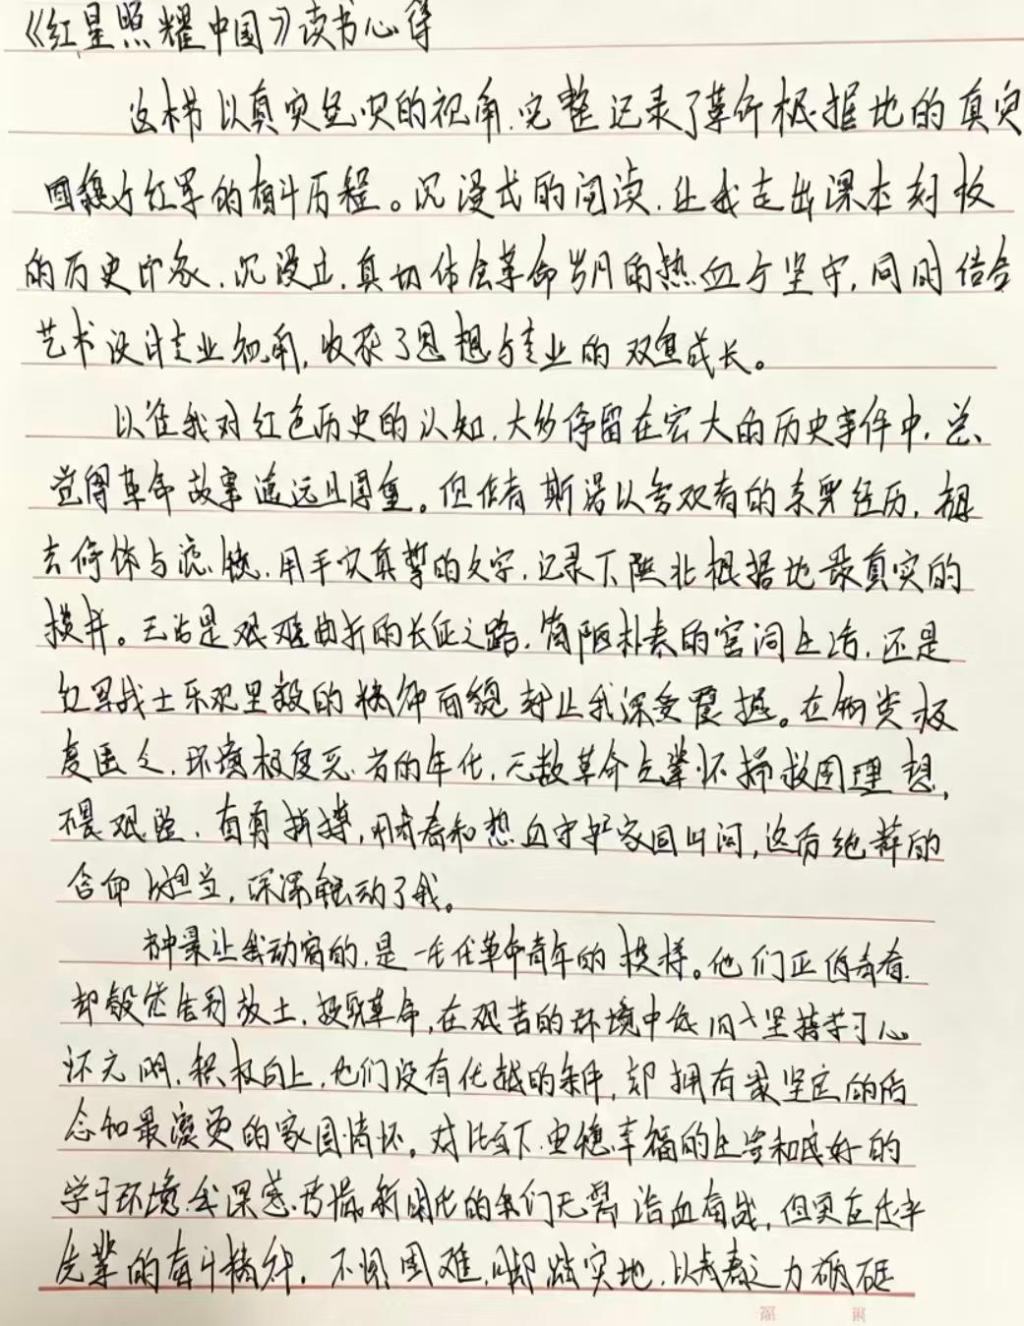 《红星照耀中国》读书心得
这本书以真实纪实的视角,完整记录了革命根据地的真实
面貌与红军的奋斗历程。沉浸式的阅读,让我走出课本刻板
的历史印象,沉浸立,真切体会革命岁月的热血与坚守,同时结合
艺术设计专业视角,收获了思想与专业的双重成长。
以往我对红色历史的认知,大多停留在宏大的历史事件中,总
觉得革命故事遥远且厚重。但作者斯诺以客观的亲身经历,摒
去修饰与滤镜,用平实真挚的文字,记录下陕北根据地最真实的
模样。无论是艰难曲折的长征之路,简陋朴素的窑洞生活,还是
红军战士乐观坚毅的精神面貌都让我深受震撼。在物资极
度匮乏,环境极度恶劣的年代,无数革命先辈怀揣救国理想,
不畏艰险,奋勇拼搏,用青春和热血守护家国山河,这份纯粹的
信仰与担当,深深触动了我。
书中最让我动容的,是一代代革命青年的模样。他们正值青春
却毅然告别故土,投身革命,在艰苦的环境中依旧坚持学习心
怀光明,积极向上,他们没有优越的条件,却拥有最坚定的信
念和最滚烫的家国情怀。对比当下安稳幸福的生活和良好的
学习环境,我深感,新时代的我们无需浴血奋战,但更应传承
先辈的奋斗精神,不惧困难,脚踏实地,以青春之力砥砺